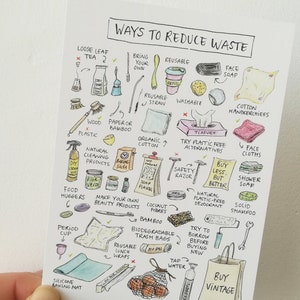 WAYS TO REDUCE WASTE
LOOSE LEAF
TEA
BRING
YOUR
OWN
REUSABLE
FACE
SOAP
REUSABLE
STRAW
WASHABLE
COTTON
HANDKERCHIEFS
WOOD
PLASTIC
PAPER OR
BAMBOO
ORGANIC
COTTON
TRY PLASTIC FREE
ALTERNATIVES
FACE
CLOTHS
NATURAL
CLEANING
PRODUCTS
SAFETY
RAZOR
BUY
LESS
BUT
BETTER
SHOWER
SOAP
FOOD
HUGGERS
MAKE YOUR OWN
BEAUTY PRODUCTS
COCONUT
FIBRES
NATURAL
PLASTIC-FREE
DEODORANT
SOLID
SHAMPOO
PERIOD
CUP
BAMBOO
BIODEGRADABLE
TRASH BAGS
TRY TO
BORROW
BEFORE
BUYING
NEW
REUSABLE
LUNCH
WRAPS
TAP
WATER
BUY
VINTAGE
SILICONE
BAKING MAT